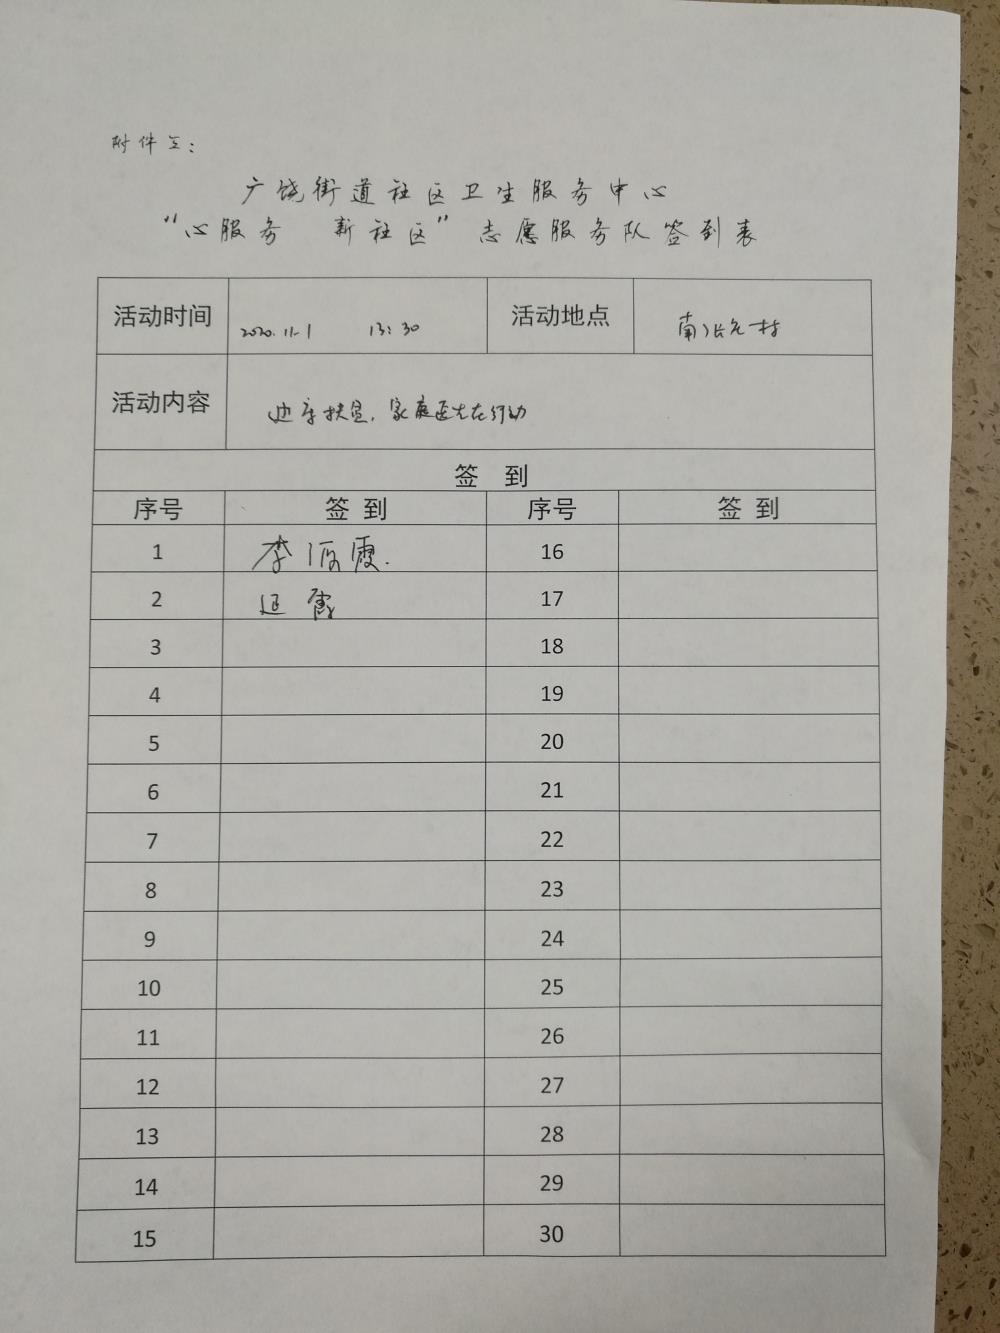 附件三：
广饶街道社区卫生服务中心
“心服务 新社区”志愿服务队签到表
活动时间 2020.11.1 13:30 活动地点 南张 村
活动内容 扶贫，家庭医生在行动
签 到
序号 签 到 序号 签 到
1 李 霞. 16
2 延 17
3 18
4 19
5 20
6 21
7 22
8 23
9 24
10 25
11 26
12 27
13 28
14 29
15 30